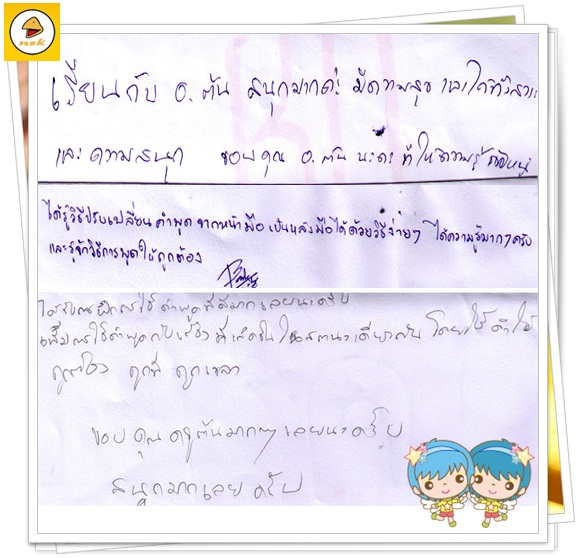 nok
เรียนกับ อ. ตัน สนุกมากค่ะ มีความสุข และได้ทั้งสาระ
และ ความสนุก ขอบคุณ อ. ตัน นะคะ ที่ให้ความรู้
ได้รู้วิธีปรับเปลี่ยนคำพูด จากหน้ามือ เป็นหลังมือได้ด้วยวิธีง่ายๆ ได้ความรู้มากๆครับ
และรู้จักวิธีการพูดให้ถูกต้อง
ใช้คำพูดที่ดีมากเลยนะครับ
โดยใช้คำให้
ถูกที่ ถูกเวลา
ขอบคุณครูตันมากๆ เลยนะครับ
สนุกมากเลยครับ